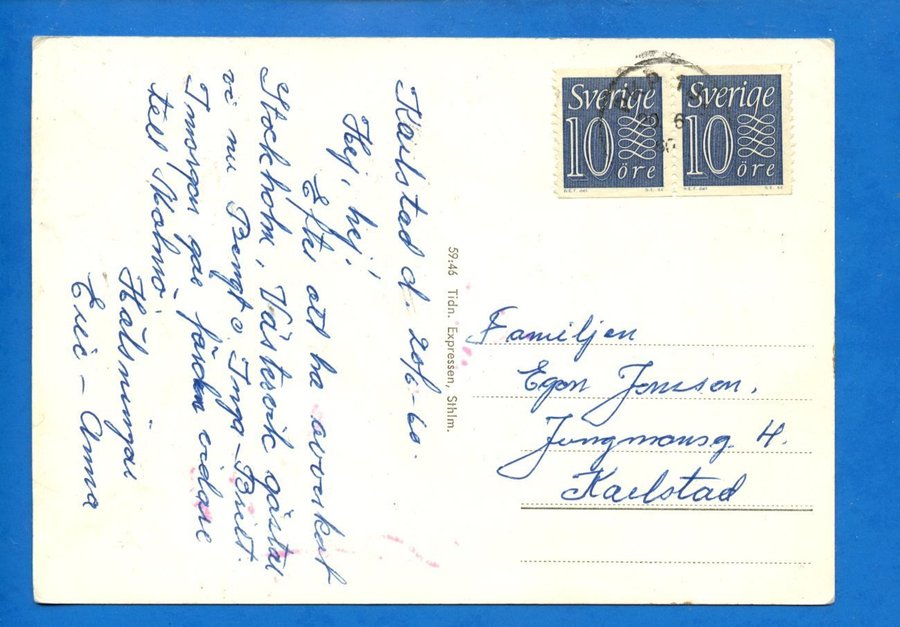 Karlstad d. 20/6-60.
Hej, hej!
Efter att ha avverkat
Stockholm, Västervik gästar
vi nu Bengt o. Inga-Britt.
I morgon går färden vidare
till Malmö.
Hälsningar
Eric - Anna
59:46 Tidn. Expressen, Sthlm.
Sverige
10
öre
Sverige
10
öre
20 6
Familjen
Egon Jonsson,
Jungmansg. 4.
Karlstad